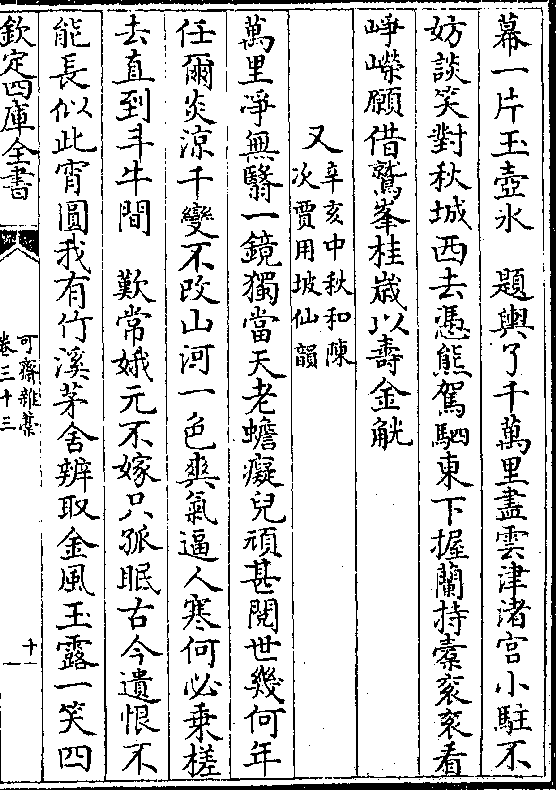 幕一片玉壺氷　題輿了千萬里盡雲津渚宫小駐不
妨談笑對秋城西去憑熊駕駟東下握蘭持橐衮衮看
崢嶸願借鷲峯桂歳以壽金觥
又辛亥中秋和陳
次賈用坡仙韻
萬里淨無翳一鏡獨當天老蟾癡兒頑甚閱世幾何年
任爾炎涼千變不改山河一色爽氣逼人寒何必乘槎
去直到斗牛間　歎常娥元不嫁只孤眠古今遺恨不
能長似此宵圓我有竹溪茅舍辨取金風玉露一笑四
欽定四庫全書
可齋雜藁
卷三十三
十一